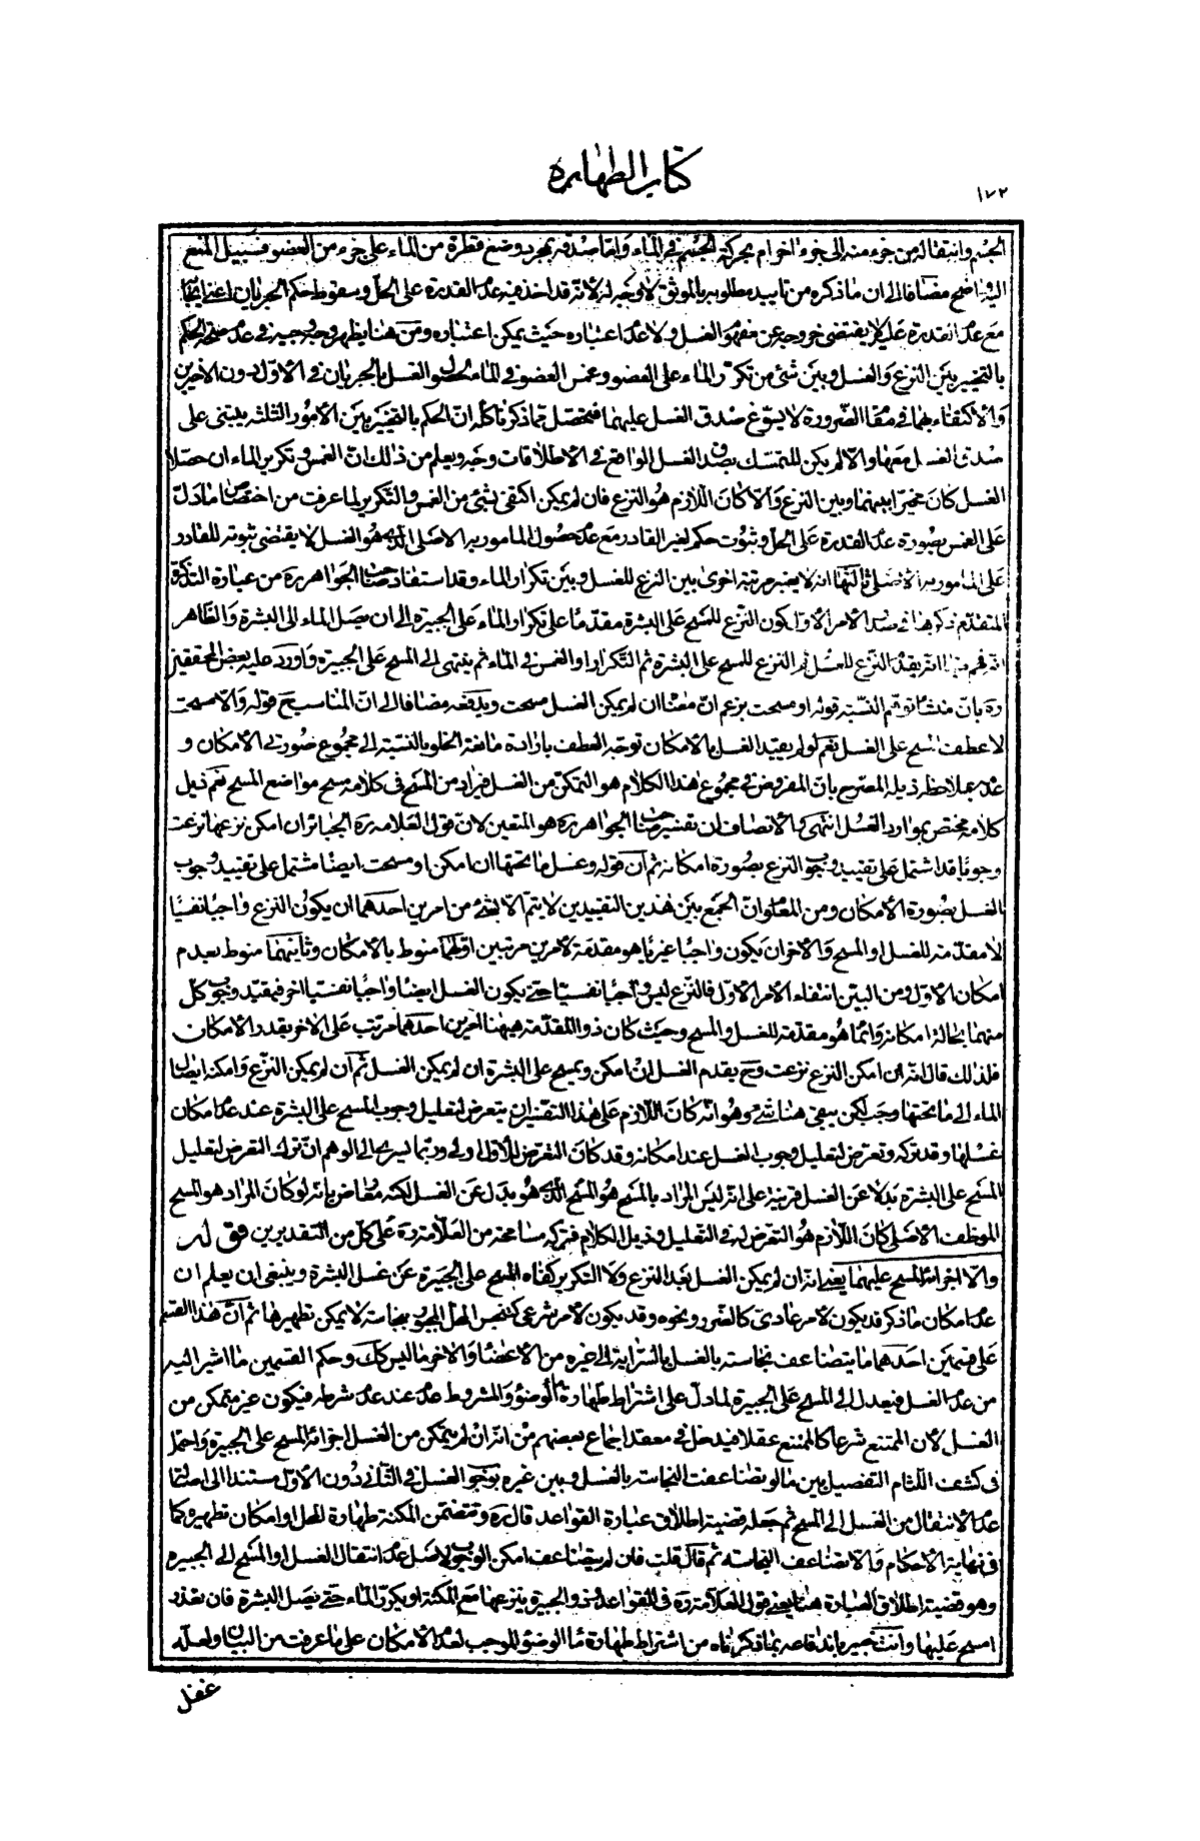 كتاب الطهارة
١٧٢
الجسم وانتقاله من جزء منه الى جزء اخر ام بحركة الجسم في الماء واما صدقه بمجرد وضع قطرة من الماء على جزء من العضو فسبيل المنع
اليه واضح مضافا الى ان ما ذكره من تاييد مطلوبه بالموثق لا وجه له لانه قد اخذ فيه عدم القدرة على الحل وسقوط حكم الجريان اعني ايجابه
مع عدم القدرة عليه لا يقتضى خروجه عن مفهوم الغسل ولا عدم اعتباره حيث يمكن اعتباره ومن هنا يظهر وجه وجيه في عدم صحة الحكم
بالتخيير بين النزع والغسل وبين شئ من تكرير الماء على العضو وغمس العضو في الماء لحصول الغسل بالجريان في الاول دون الاخيرين
والاكتفاء بهما في مقام الضرورة لا يسوّغ صدق الغسل عليهما فتحصل مما ذكرنا كله ان الحكم بالتخيير بين الامور الثلثة يبتنى على
صدق الغسل معها والا لم يكن للتمسك بصدق الغسل الواقع في الاطلاقات وجه ويعلم من ذلك ان الغمس وتكرير الماء ان حصلا
الغسل كان مخيرا بينهما وبين النزع والا كان اللازم هو النزع فان لم يكن اكتفى بشئ من الغمس والتكرير لما عرفت من اختصاص ما دل
على الغمس بصورة عدم القدرة على الحل وثبوت حكم لغير القادر مع عدم حصول المامور به الاصلى الذي هو الغسل لا يقتضى ثبوته للقادر
على المامور به الاصلى ثالثها انه لا يعتبر مرتبة اخرى بين النزع للغسل وبين تكرار الماء وقد استفاد صاحب الجواهر ره من عبارة التذكرة
المتقدم ذكرها في صدر الامر الاول كون النزع للمسح على البشرة مقدما على تكرار الماء على الجبيرة الى ان يصل الماء الى البشرة والظاهر
انه فهم منها انه يقدم النزع للغسل ثم النزع للمسح على البشرة ثم التكرار او الغمس في الماء ثم ينتهى الى المسح على الجبيرة واورد عليه بعض المحققين
ره بان منشأ توهم النسبة قوله او مسحت بزعم ان معناه ان لم يمكن الغسل مسحت ويدفعه مضافا الى ان المناسب ح قوله والا مسحت
لا عطف المسح على الغسل نعم لو لم يقيد الغسل بالامكان توجه العطف بارادة مانعة الخلو بالنسبة الى مجموع صورتي الامكان و
عدمه بملاحظة ذيله المصرح بان المفروض في مجموع هذا الكلام هو التمكن من الغسل فيراد من المسح في كلامه مسح مواضع المسح نعم ذيل
كلامه مختص بموارد الغسل انتهى والانصاف ان تفسير صاحب الجواهر ره هو المتعين لان قول العلامة ره الجبائر ان امكن نزعها نزعت
وجوبا قد اشتمل على تقييد وجوب النزع بصورة امكانه ثم ان قوله وغسل ما تحتها ان امكن او مسحت ايضا مشتمل على تقييد وجوب
الغسل بصورة الامكان ومن المعلوم ان الجمع بين هذين التقييدين لا يتم الا بشئ من امرين احدهما ان يكون النزع واجبا نفسيا
لا مقدمة للغسل او المسح والاخر ان يكون واجبا غيريا هو مقدمة لامرين مرتبين اولهما منوط بالامكان وثانيهما منوط بعدم
امكان الاول ومن البين انتفاء الامر الاول فالنزع ليس واجبا نفسيا حتى يكون الغسل ايضا واجبا نفسيا اخر فيقيد وجوب كل
منهما بحالة امكانه وانما هو مقدمة للغسل والمسح وحيث كان ذو المقدمة هيهنا امرين احدهما مرتب على الاخر بقدر الامكان
فلذلك قال انه ان امكن النزع نزعت وح يقدم الغسل ان امكن ويمسح على البشرة ان لم يمكن الغسل ثم ان لم يمكن النزع وامكنه ايصال
الماء الى ما تحتها وجب لكن يبقى هنا شئ وهو انه كان اللازم على هذا التفسير ان يتعرض لتعليل وجوب المسح على البشرة عند عدم امكان
غسلها وقد تركه وتعرض لتعليل وجوب الغسل عند امكانه وقد كان التعرض للاول اولى وربما يسرى الى الوهم ان ترك التعرض لتعليل
المسح على البشرة بدلا عن الغسل قرينة على انه ليس المراد بالمسح هو المسح الذي هو بدل عن الغسل لكنه معارض بانه لو كان المراد هو المسح
الموظف الاصلى كان اللازم هو التعرض له في التعليل وذيل الكلام فتركه مسامحة من العلامة ره على كل من التقديرين قوله
والا اجزأه المسح عليهما يعنى انه ان لم يمكن الغسل بعد النزع ولا التكرير كفاه المسح على الجبيرة عن غسل البشرة وينبغى ان يعلم ان
عدم امكان ما ذكر قد يكون لامر عادي كالضرر ونحوه وقد يكون لامر شرعى كتنجس المحل المجبور بنجاسة لا يمكن تطهيرها ثم ان هذا القسم
على قسمين احدهما ما يتضاعف نجاسته بالغسل بالسراية الى غيره من الاعضاء والاخر ما ليس كك وحكم القسمين ما اشير اليه
من عدم الغسل فيعدل الى المسح على الجبيرة لما دل على اشتراط طهارة ماء الوضوء والمشروط عدم عند عدم شرطه فيكون غير متمكن من
الغسل لان الممتنع شرعا كالممتنع عقلا فيدخل في معقد اجماع بعضهم من انه ان لم يتمكن من الغسل اجزائه المسح على الجبيرة واحتمل
في كشف اللثام التفصيل بين ما لو تضاعفت النجاسة بالغسل وبين غيره بوجوب الغسل في الثاني دون الاول مستندا الى اصالة
عدم الانتقال من الغسل الى المسح ثم جعله قضية اطلاق عبارة القواعد قال ره وتتضمن المكنة طهارة المحل او امكان تطهيره كما
في نهاية الاحكام والا تضاعف النجاسة ثم قال قلت فان لم يتضاعف امكن الوجوب لاصل عدم انتقال الغسل او المسح الى الجبيرة
وهو قضية اطلاق العبارة هنا يعنى قول العلامة ره في القواعد وذو الجبيرة ينزعها مع المكنة او يكرر الماء حتى يصل البشرة فان تعذر
امسح عليها وانت خبير باندفاعه بما ذكرناه من اشتراط طهارة ماء الوضوء الموجب لعدم الامكان على ما عرفت من البيان ولعله
غفل